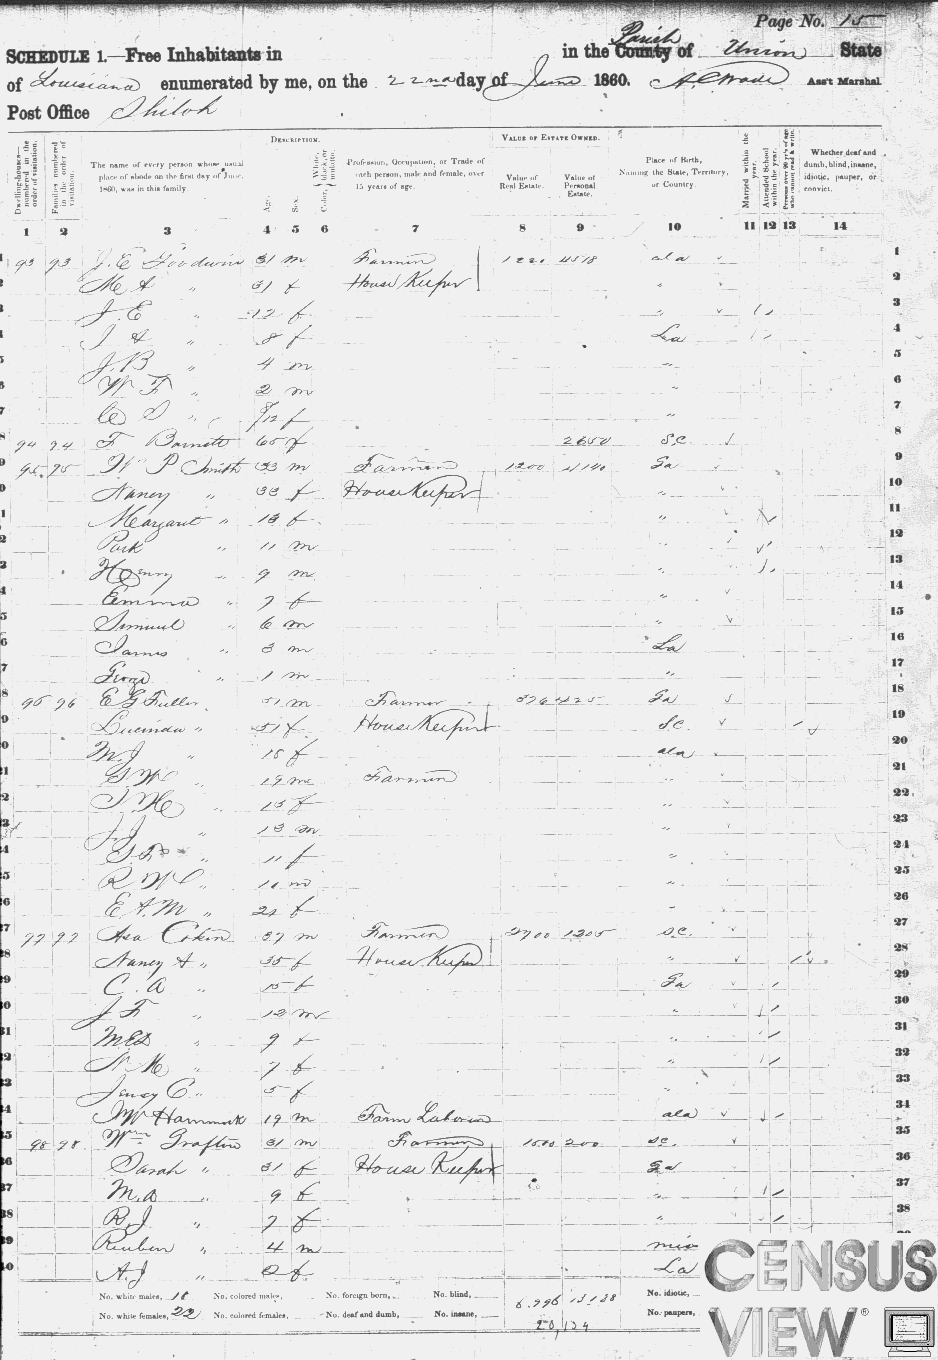 Page No. 15
SCHEDULE 1.—Free Inhabitants in in the County Parish of Union State
of Louisiana enumerated by me, on the 22nd day of June 1860. A. C. Wade Ass't Marshal
Post Office Shiloh
DESCRIPTION. VALUE OF ESTATE OWNED.
Dwelling-houses—numbered in the order of visitation. Families numbered in the order of visitation. The name of every person whose usual place of abode on the first day of June, 1860, was in this family. Age. Sex. Color, White, black, or mulatto. Profession, Occupation, or Trade of each person, male and female, over 15 years of age. Value of Real Estate. Value of Personal Estate. Place of Birth, Naming the State, Territory, or Country. Married within the year. Attended School within the year. Persons over 20 y'rs of age who cannot read & write. Whether deaf and dumb, blind, insane, idiotic, pauper, or convict.
1 2 3 4 5 6 7 8 9 10 11 12 13 14
93 93 J. E. Goodwin 31 m Farmer 4518 ala 1
M A " 31 f House Keeper " 2
J. E " 12 f " / 3
J A " 8 f La / 4
J. B " 4 m " 5
W F " 2 m " 6
" /12 f " 7
94 94 F Barnett 65 f 2650 S.C. 8
95 95 Wm P Smith 33 m Farmer 1200 Ga 9
Nancy " 33 f House Keeper " 10
Margaret " 13 f " 11
Park " 11 m " 12
Henry " 9 m " 13
Emma " 7 f " 14
Simuel " 6 m " 15
James " 3 m La 16
George " 1 m " 17
96 96 E G Fuller 51 m Farmer Ga 18
Lucinda " 51 f House Keeper S.C. / 19
M. J " 18 f ala 20
G W " 19 m Farmer " 21
" 15 f " 22
J. J " 13 m " 23
" 11 f " 24
R W " 10 m " 25
E A. M " 21 f " 26
97 97 Asa 37 m Farmer 2700 1205 S.C. 27
Nancy A " 35 f House Keeper " / 28
C. A " 15 f Ga / 29
J F " 12 m " / 30
M.E.S " 9 f " / 31
" 7 f " / 32
C. " 5 f " 33
J W Hammock 19 m Farm Laborer ala / 34
98 98 Wm Grafton 31 m Farmer 1500 200 S.C. 35
Sarah " 31 f House Keeper Ga 36
M. A " 9 f " / 37
R. J " 7 f " / 38
Reuben " 4 m mis
A. J " 2 f La
No. white males, 18 No. colored males, No. foreign born, No. blind, 6.996 13138 No. idiotic,
No. white females, 22 No. colored females, No. deaf and dumb, No. insane, No. paupers,
20,134
CENSUS
VIEW®